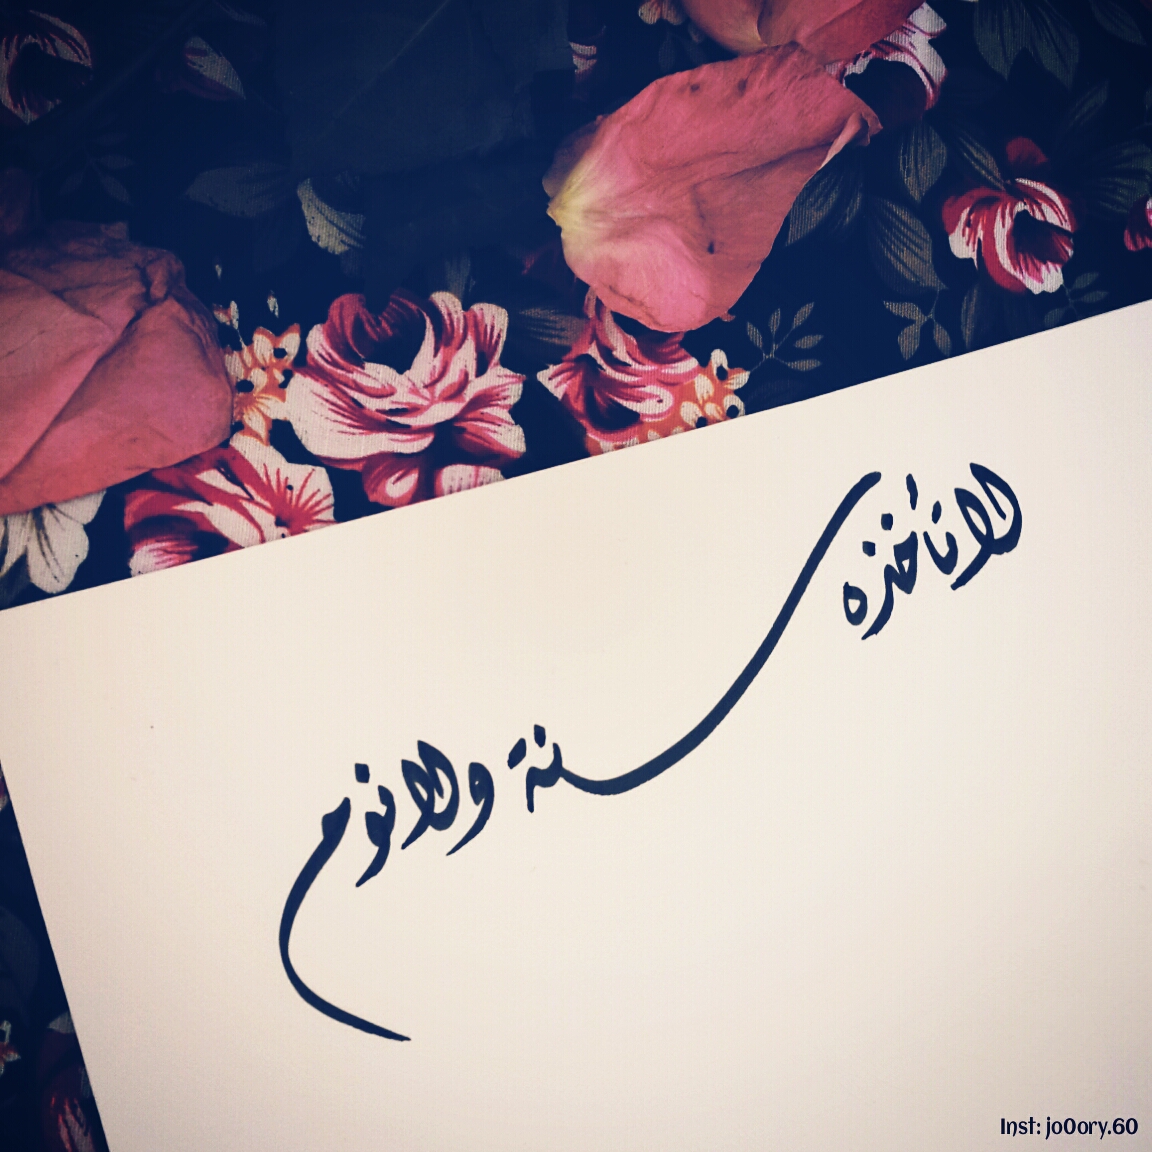 لا تأخذه سنة ولا نوم
Inst: jo0ory.60